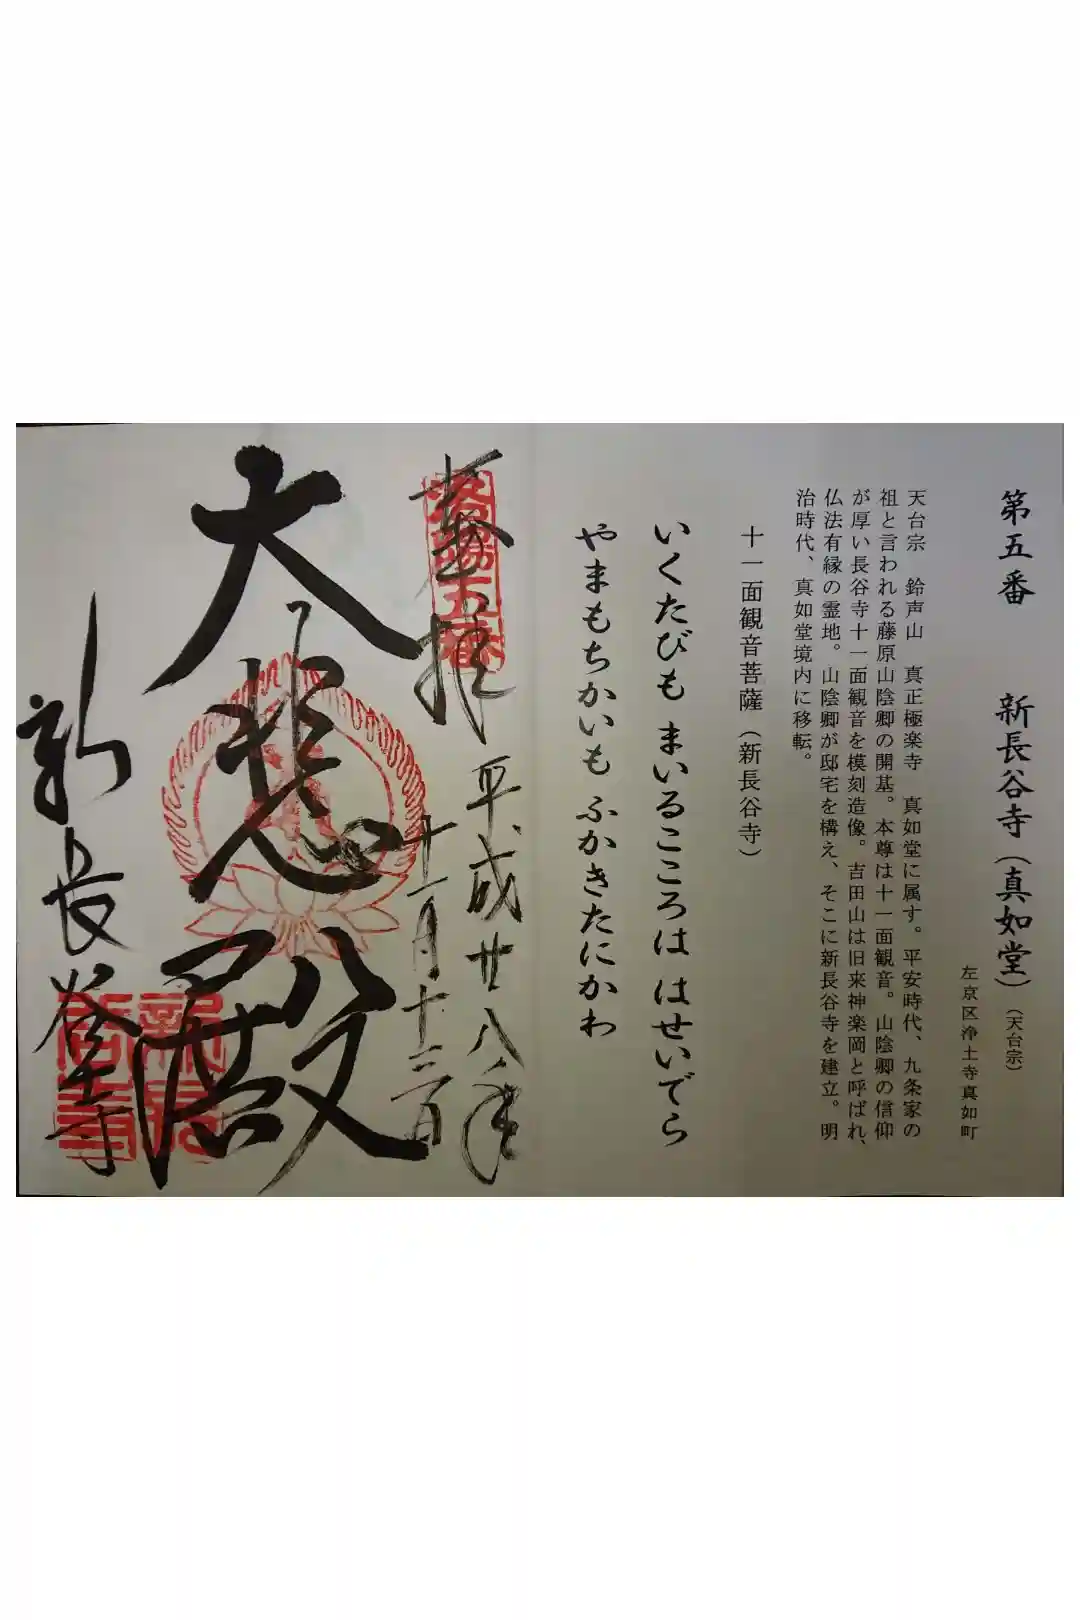 第五番　新長谷寺（真如堂）（天台宗）
左京区浄土寺真如町
天台宗　鈴声山　真正極楽寺　真如堂に属す。平安時代、九条家の
祖と言われる藤原山陰卿の開基。本尊は十一面観音。山陰卿の信仰
が厚い長谷寺十一面観音を模刻造像。吉田山は旧来神楽岡と呼ばれ、
仏法有縁の霊地。山陰卿が邸宅を構え、そこに新長谷寺を建立。明
治時代、真如堂境内に移転。
十一面観音菩薩（新長谷寺）
いくたびも まいるこころは はせいでら
やまもちかいも ふかきたにかわ
奉拝
洛陽五番
平成廿八年
十一月十三日
大悲殿
新長谷寺
新長谷寺